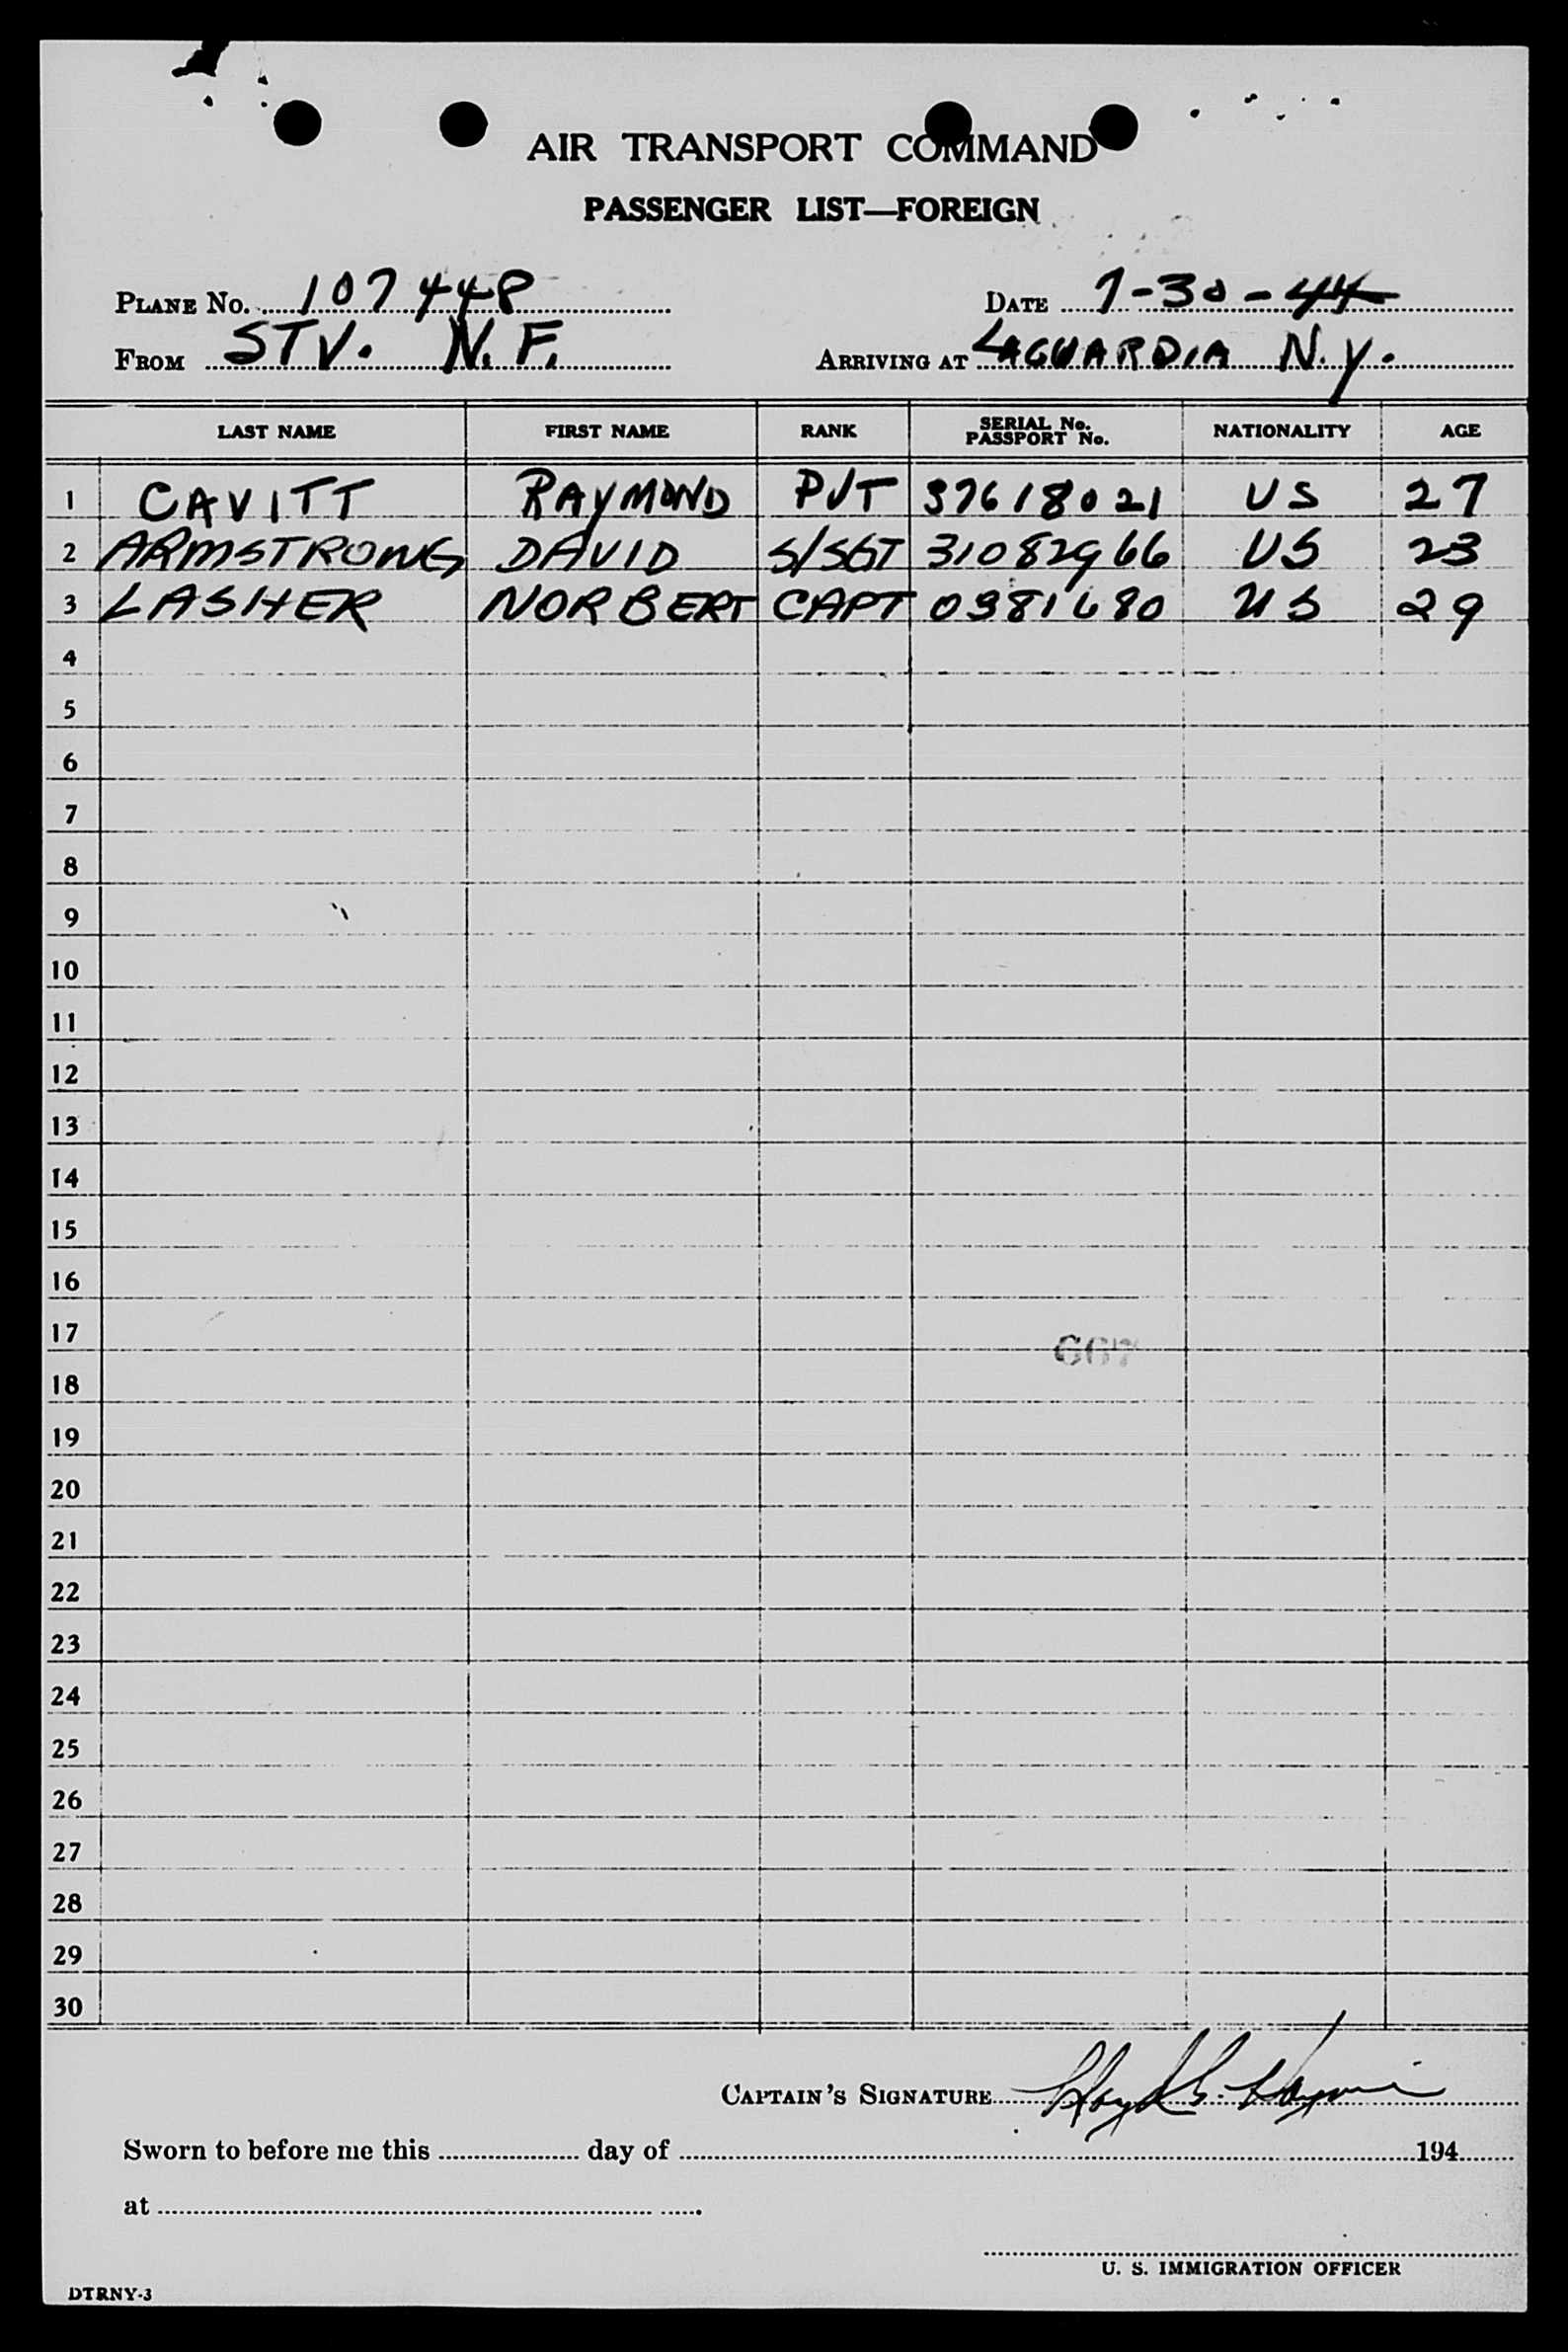 AIR TRANSPORT COMMAND
PASSENGER LIST—FOREIGN
PLANE No. 107448 DATE 7-30-44
FROM STV. N.F. ARRIVING AT LAGUARDIA N.Y.
LAST NAME FIRST NAME RANK SERIAL No. PASSPORT No. NATIONALITY AGE
1 CAVITT RAYMOND PVT 37618021 US 27
2 ARMSTRONG DAVID S/SGT 31082966 US 23
3 LASHER NORBERT CAPT 0381680 US 29
4
5
6
7
8
9
10
11
12
13
14
15
16
17
18
19
20
21
22
23
24
25
26
27
28
29
30
CAPTAIN'S SIGNATURE
Sworn to before me this day of 194
at
U. S. IMMIGRATION OFFICER
DTRNY-3